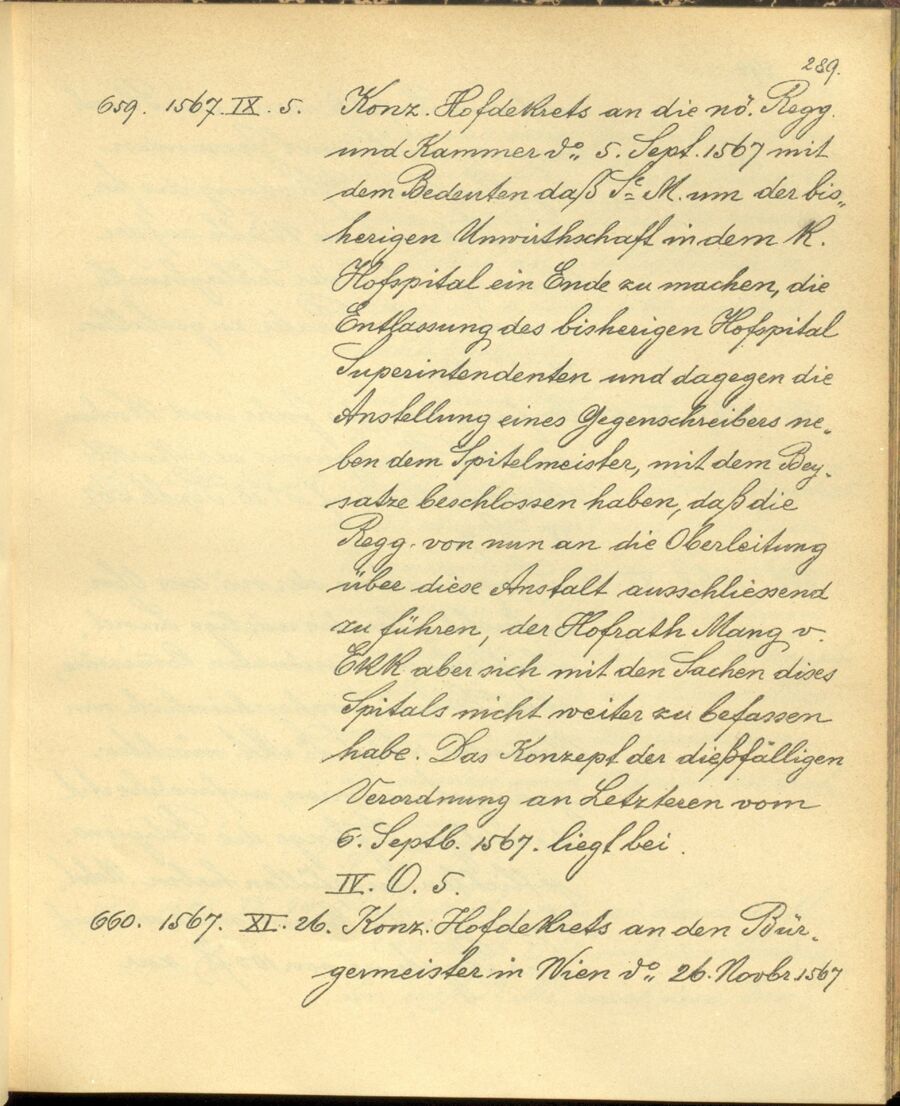 289.
659. 1567. IX. 5. Konz. Hofdekrets an die nö. Regg.
und Kammer do. 5. Sept. 1567 mit
dem Bedeuten daß Se M. um der bis„
herigen Unwirthschaft in dem K.
Hofspital ein Ende zu machen, die
Entlassung des bisherigen Hofspital
Superintendenten und dagegen die
Anstellung eines Gegenschreibers ne„
ben dem Spitelmeister, mit dem Bey„
satze beschlossen haben, daß die
Regg. von nun an die Oberleitung
über diese Anstalt ausschliessend
zu führen, der Hofrath Mang v.
EKK aber sich mit den Sachen dises
Spitals nicht weiter zu befassen
habe. Das Konzept der dießfälligen
Verordnung an Letzteren vom
6. Septb. 1567. liegt bei.
IV. O. 5.
660. 1567. XI. 26. Konz. Hofdekrets an den Bür„
germeister in Wien do. 26. Novbr 1567